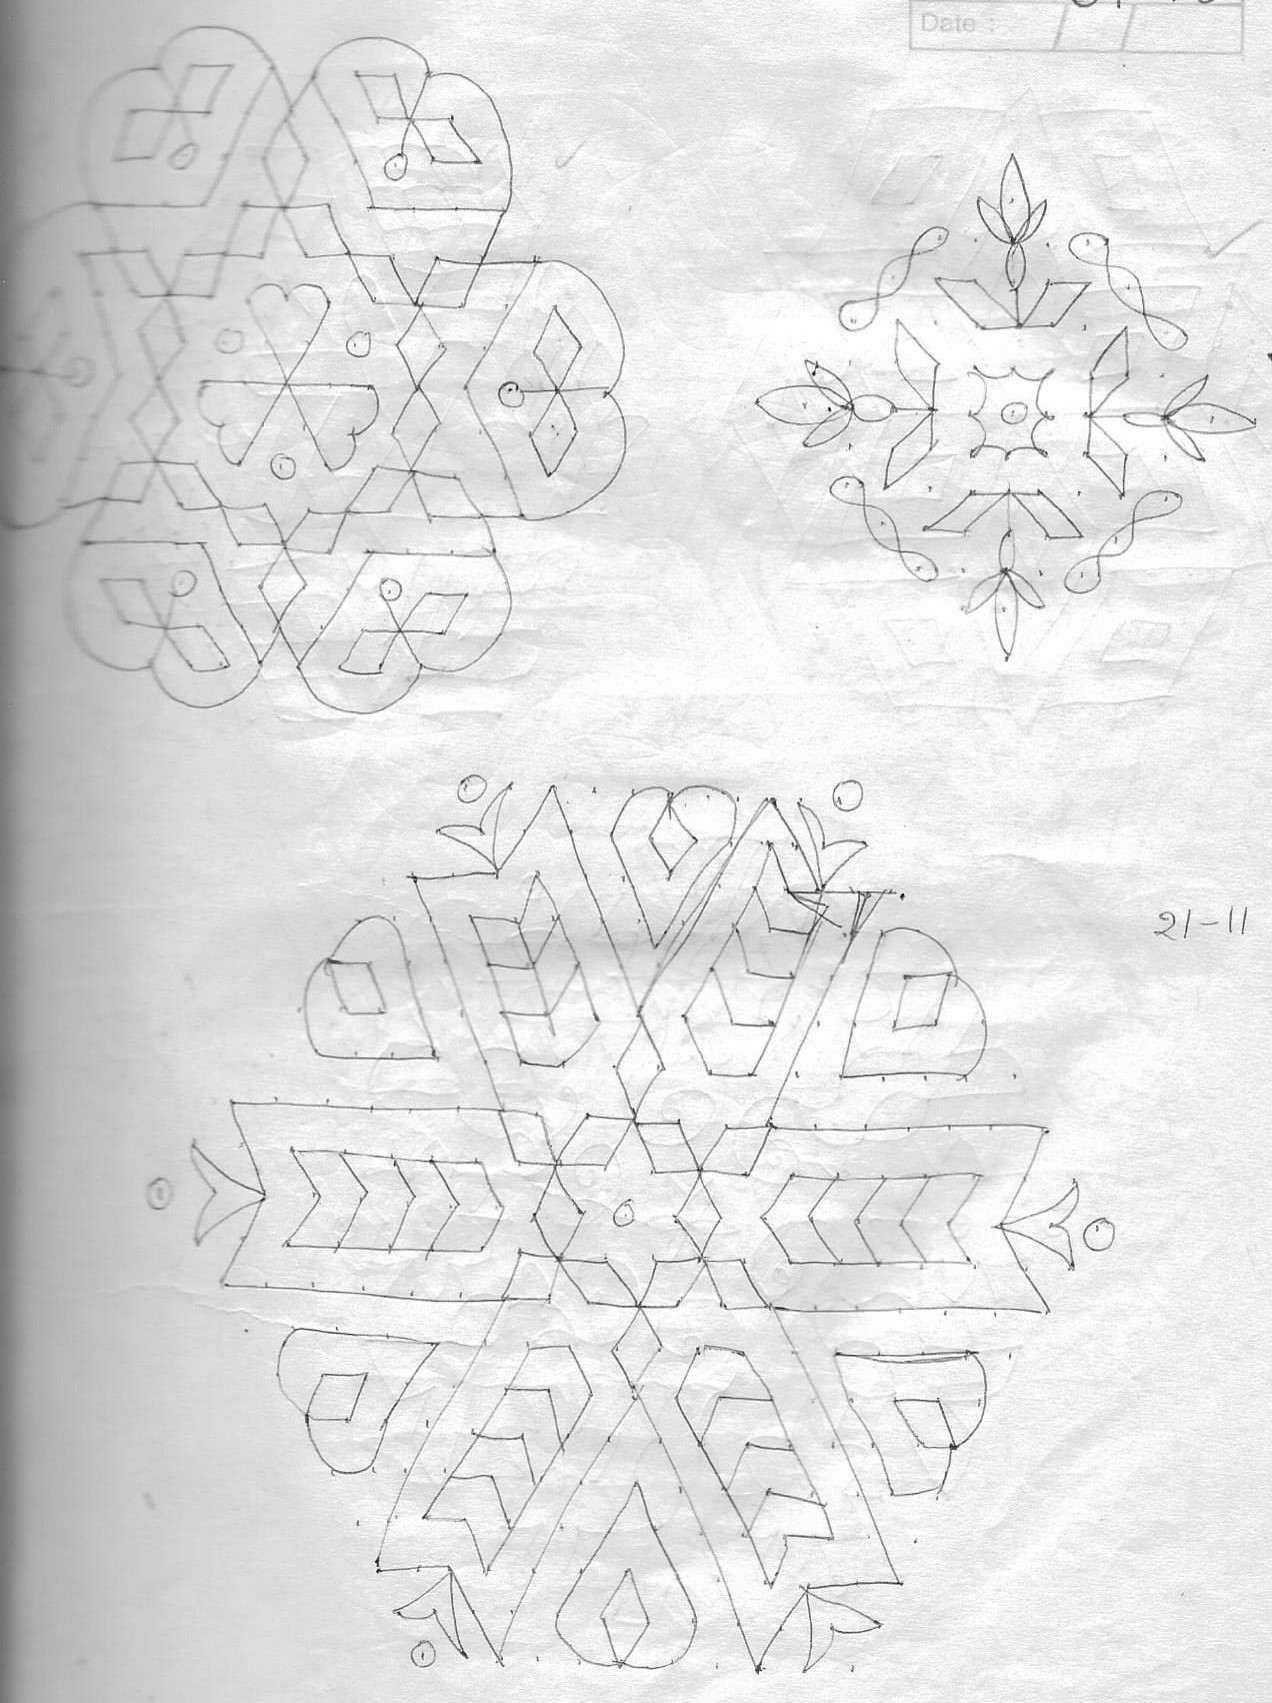 Date :
21-11